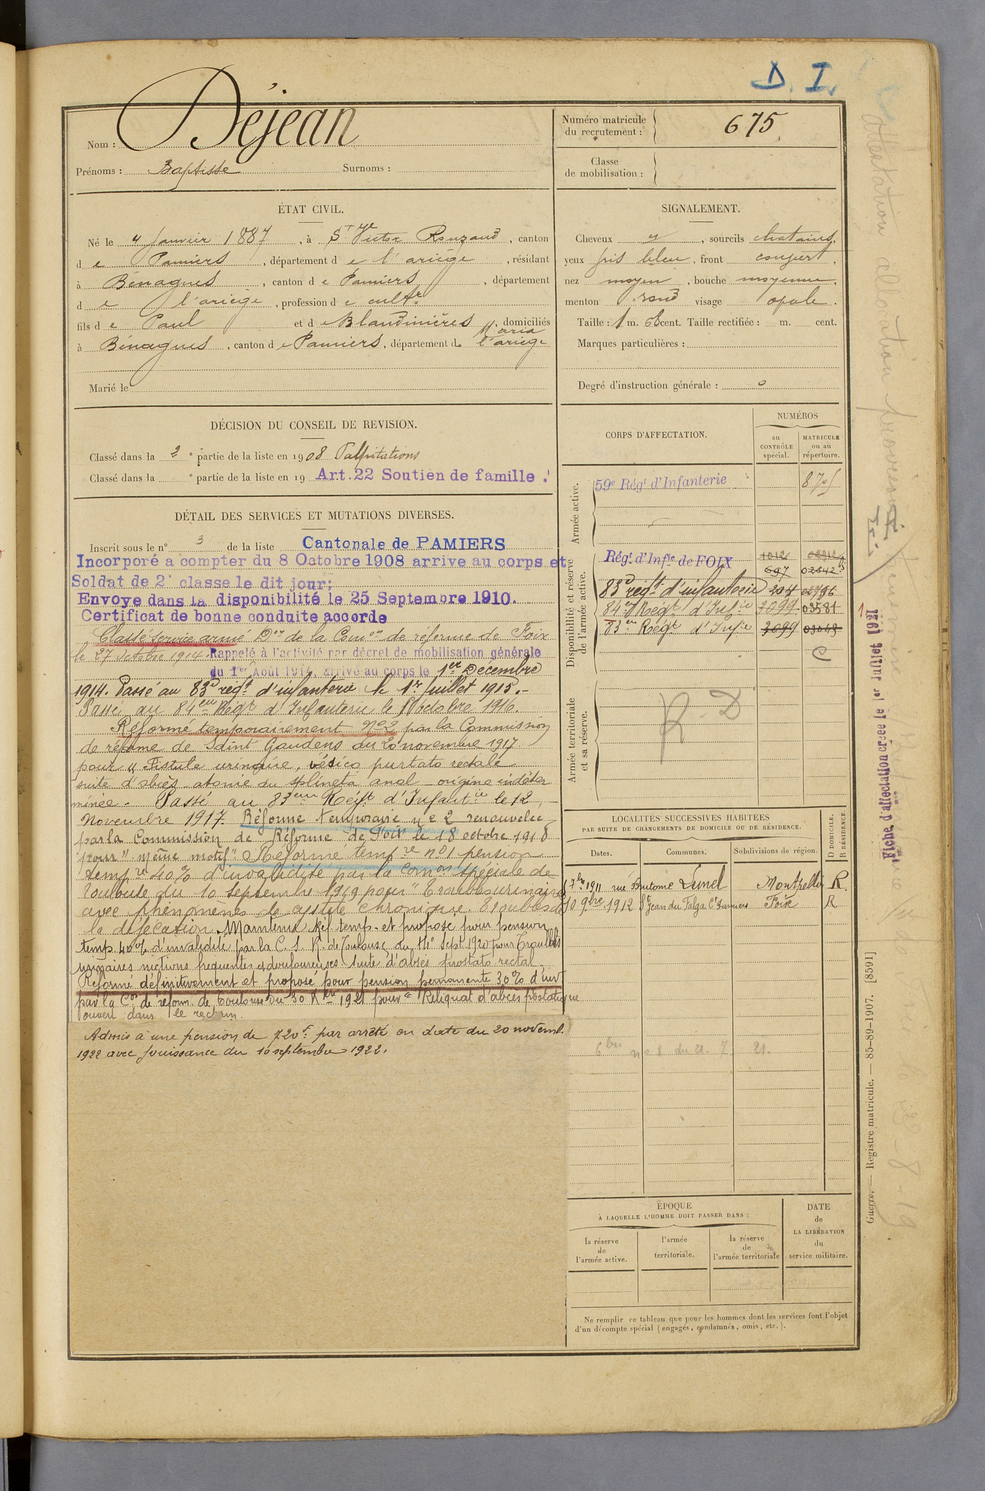 D. I.
Nom : Déjean
Prénoms : Baptiste Surnoms :
Numéro matricule du recrutement : 675
Classe de mobilisation :
ÉTAT CIVIL.
Né le 4 Janvier 1887, à St Victor Rouzaud, canton
de Pamiers, département de l'ariège, résidant
à Bénagues, canton de Pamiers, département
de l'ariège, profession de cultr
fils de Paul et de Blandinières Maria, domiciliés
à Bénagues, canton de Pamiers, département de l'ariège
Marié le
SIGNALEMENT.
Cheveux y, sourcils chatains,
yeux gris bleu, front couvert,
nez moyen, bouche moyenne,
menton rond visage ovale.
Taille : 1 m. cent. Taille rectifiée : m. cent.
Marques particulières :
Degré d'instruction générale : 0
DÉCISION DU CONSEIL DE REVISION.
Classé dans la 2e partie de la liste en 1908 Palpitations
Classé dans la e partie de la liste en 19 Art. 22 Soutien de famille.
DÉTAIL DES SERVICES ET MUTATIONS DIVERSES.
Inscrit sous le n° 3 de la liste Cantonale de PAMIERS
Incorporé à compter du 8 Octobre 1908 arrive au corps et
Soldat de 2e classe le dit jour;
Envoye dans la disponibilité le 25 Septembre 1910.
Certificat de bonne conduite accorde
Classé service armé Don de la Comon de réforme de Foix
le 27 Octobre 1914. Rappelé à l'activité par décret de mobilisation générale
du 1er Août 1914, arrivé au corps le 1er Décembre
1914. Passé au 83e régt d'infanterie le 1er Juillet 1915.
Passé au 84eme Régt d'Infanterie le octobre 1916.
Réformé temporairement n°2 par la Commission
de réforme de Saint Gaudens du novembre 1917
pour "Fistule urinaire, vésico purtato rectale
suite d'abcès atonie du splincter anal origine indéter
minée. Passé au 83eme Régt d'Infantie le 12
Novembre 1917. Réforme temporaire n° 2 renouvelée
par la Commission de Réforme de Foix le 18 octobre 1918
pour "même motif". Réforme tempre n°1 pension
tempre 40% d'invalidité par la Comon spéciale de
Toulouse du 10 septembre 1919 pour "Troubles urinaires
avec phénomènes de cystite chronique. Troubles de
la défécation. Maintenu Réf. temp. et proposé pour pension
temp. 40% d'invalidité par la C. S. R. de Toulouse du Sept 1920 pour troubles
urinaires mictions fréquentes et douloureuses suite d'abcès prostato rectal
Réformé définitivement et proposé pour pension permanente 30% d'inv
par la Con de réform. de Toulouse du 30 Xbre 1921 pour "Reliquat d'abcès prostatique
ouvert dans le rectum.
Admis à une pension de 720f. par arrêté en date du 20 novemb.
1922 avec jouissance du 10 septembre 1922.
CORPS D'AFFECTATION.
NUMÉROS
au CONTRÔLE spécial.
MATRICULE ou au répertoire.
Armée active.
59e Régt d'Infanterie 875
Disponibilité et réserve de l'armée active.
Régt d'Infie de FOIX
697 02842
83e regt d'infanterie
84e Régt d'Infie 3099 03581
83em Régt d'Infie 3099
Armée territoriale et sa réserve.
R. D
LOCALITES SUCCESSIVES HABITÉES
PAR SUITE DE CHANGEMENTS DE DOMICILE OU DE RÉSIDENCE.
Dates. Communes. Subdivisions de région. D DOMICILE. R RÉSIDENCE.
7bre 1911 rue Lunel Montpellier R
10 9bre 1912 St Jean du Falga Cn Pamiers Foix R
ÉPOQUE
À LAQUELLE L'HOMME DOIT PASSER DANS :
la réserve de l'armée active.
l'armée territoriale.
la réserve de l'armée territoriale
DATE de LA LIBÉRATION du service militaire.
Ne remplir ce tableau que pour les hommes dont les services font l'objet
d'un décompte spécial (engagés, condamnés, omis, etc.).
Fiche d'affectation créée le 1er Juillet 1921
Guerre. — Registre matricule. — 85-89-1907. [8591]